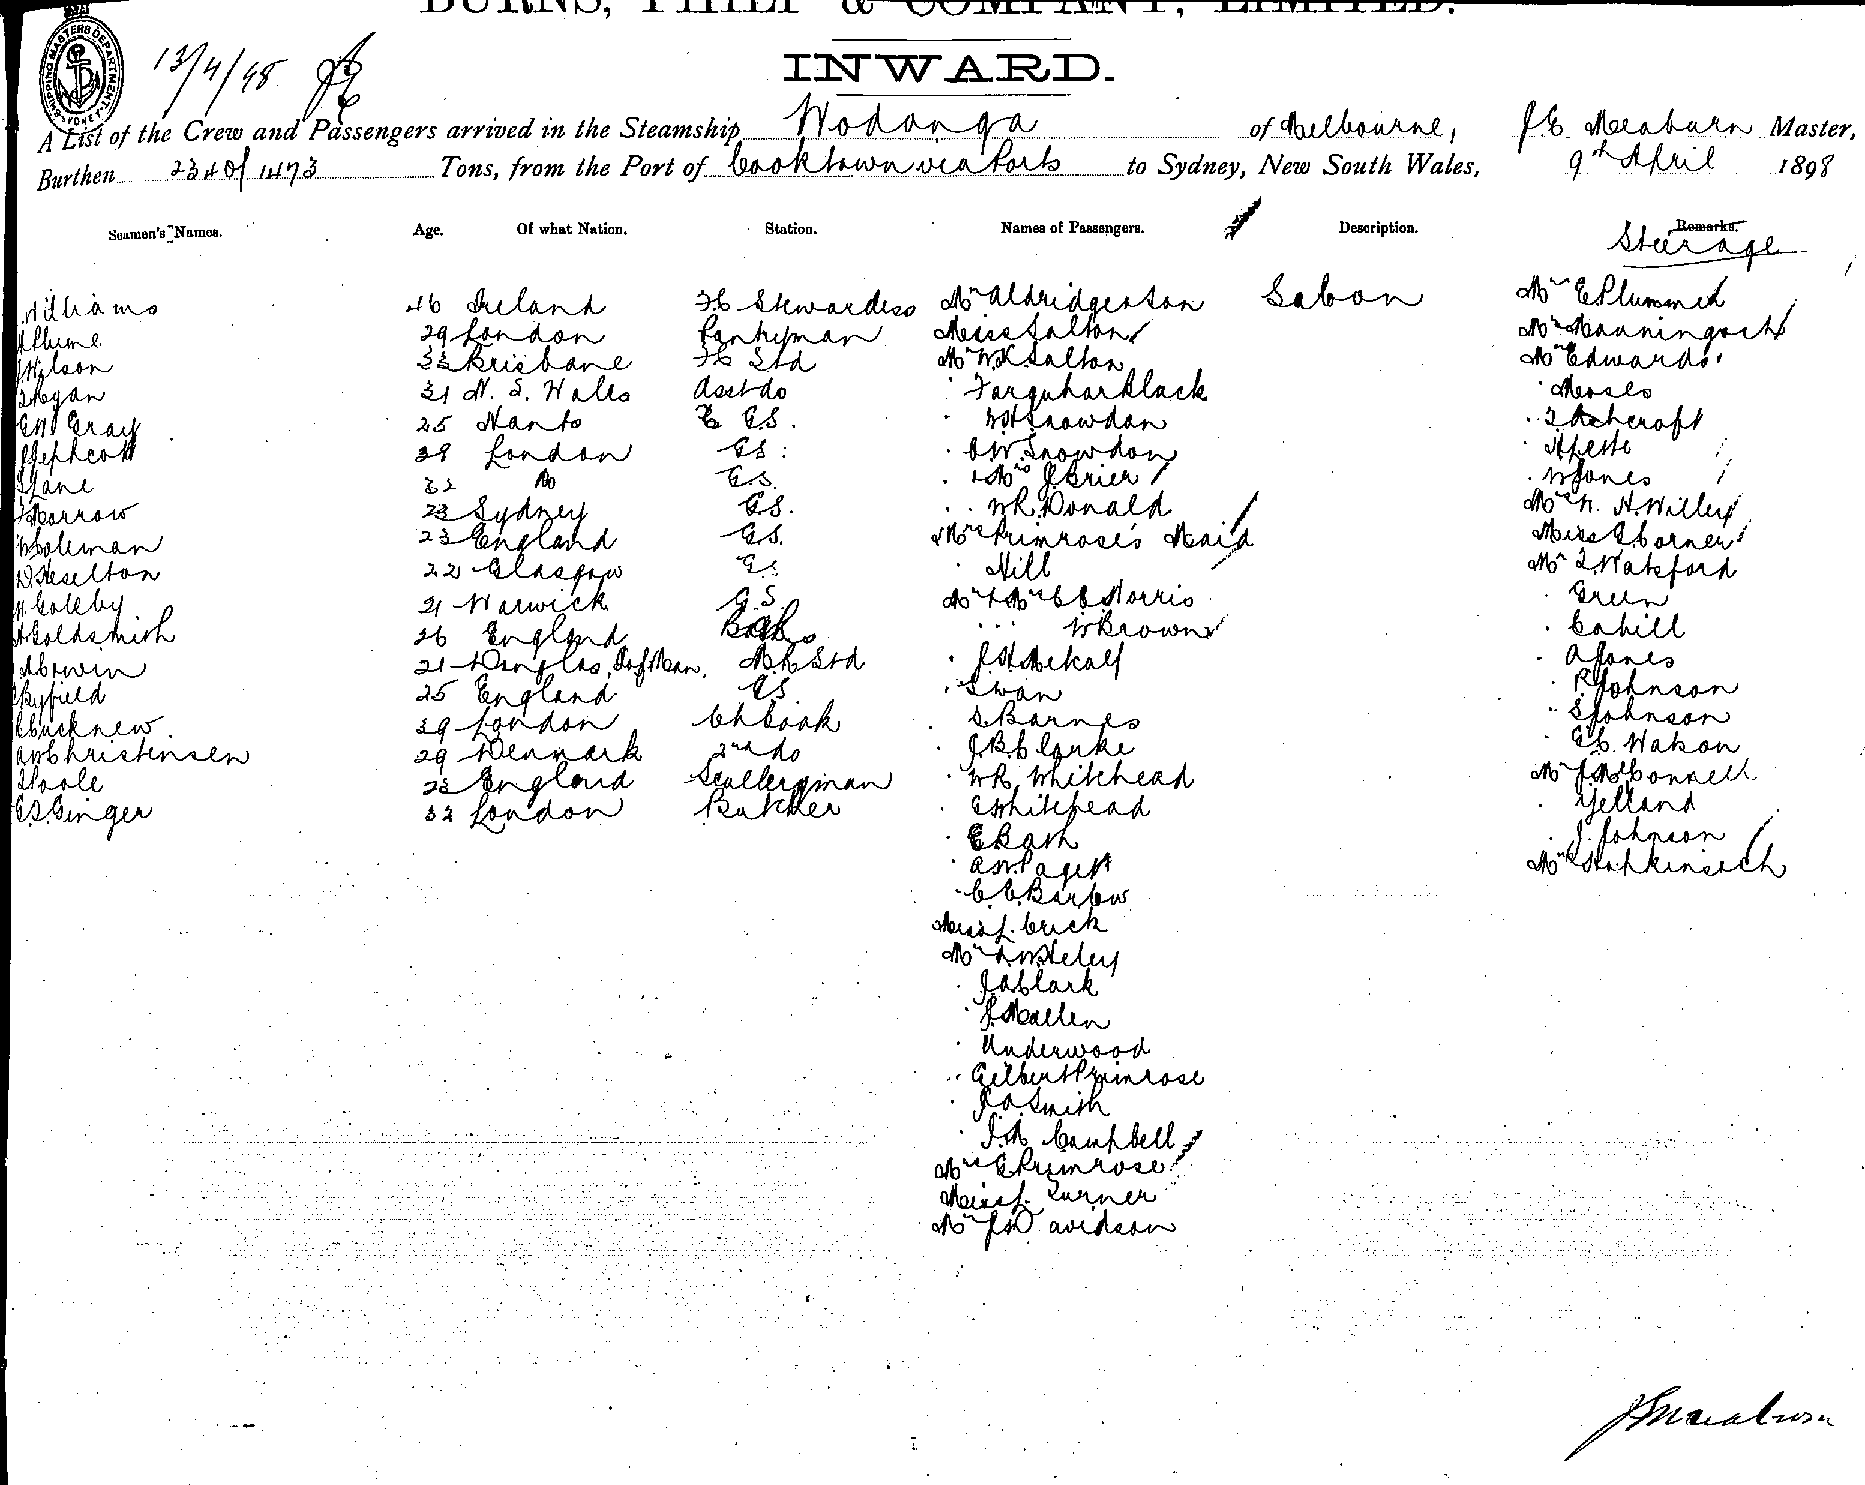 BURNS, PHILP & COMPANY, LIMITED.
INWARD.
SHIPPING MASTERS DEPARTMENT SYDNEY
13/4/98
A List of the Crew and Passengers arrived in the Steamship Wodonga of Melbourne, J E Meaburn Master,
Burthen 2340/1473 Tons, from the Port of Cooktown via Ports to Sydney, New South Wales, 9th April 1898
Seamen's Names. Age. Of what Nation. Station. Names of Passengers. Description. Remarks.
Steerage
Williams 46 Ireland Stewardess Mr Aldridge & Son Saloon Mr E Plummer
Plume 29 London Pantryman Miss Salton Mr Manning & ch
Wilson 33 Brisbane Std Mr W K Salton Mr Edwards
Regan 31 N. S. Wales Asst do Farquhar Black Moses
Gray 25 Hants GS. W H Snowdon T Ashcroft
Jephcott 39 London GS. Snowdon
Lane 32 Do GS. Mrs J Grier W Jones
Morrow 23 Sydney GS. W R Donald Willey
W Coleman 23 England GS. Mrs Primrose's Maid Miss G Corner
Heselton 22 Glasgow GS Hill Mr T Watsford
Goleby 21 Warwick G.S. Mr & Mrs C C Morris Green
Goldsmith 26 England W Brown Cahill
21 Douglas, I of Man. Std J H Metcalf A Jones
Byfield 25 England GS Swan R Johnson
Bucknew 39 London Ch Cook S. Barnes S Johnson
Christensen 29 Denmark 2nd do J B Clarke G C Watson
Poole 23 England Scullery man W R Whitehead Mr J McConnell
E S Ginger 32 London Butcher E Whitehead Yelland
E Bath J. Johnson
A W Paget Mrs Hopkins & ch
C C Barlow
Miss L. Crick
Mr Heley
J A Clark
J Mullen
Underwood
Gilbert Primrose
J A Smith
J. A Campbell
Mrs E Primrose
Miss L. Turner
Mr J D Davidson
J E Meaburn